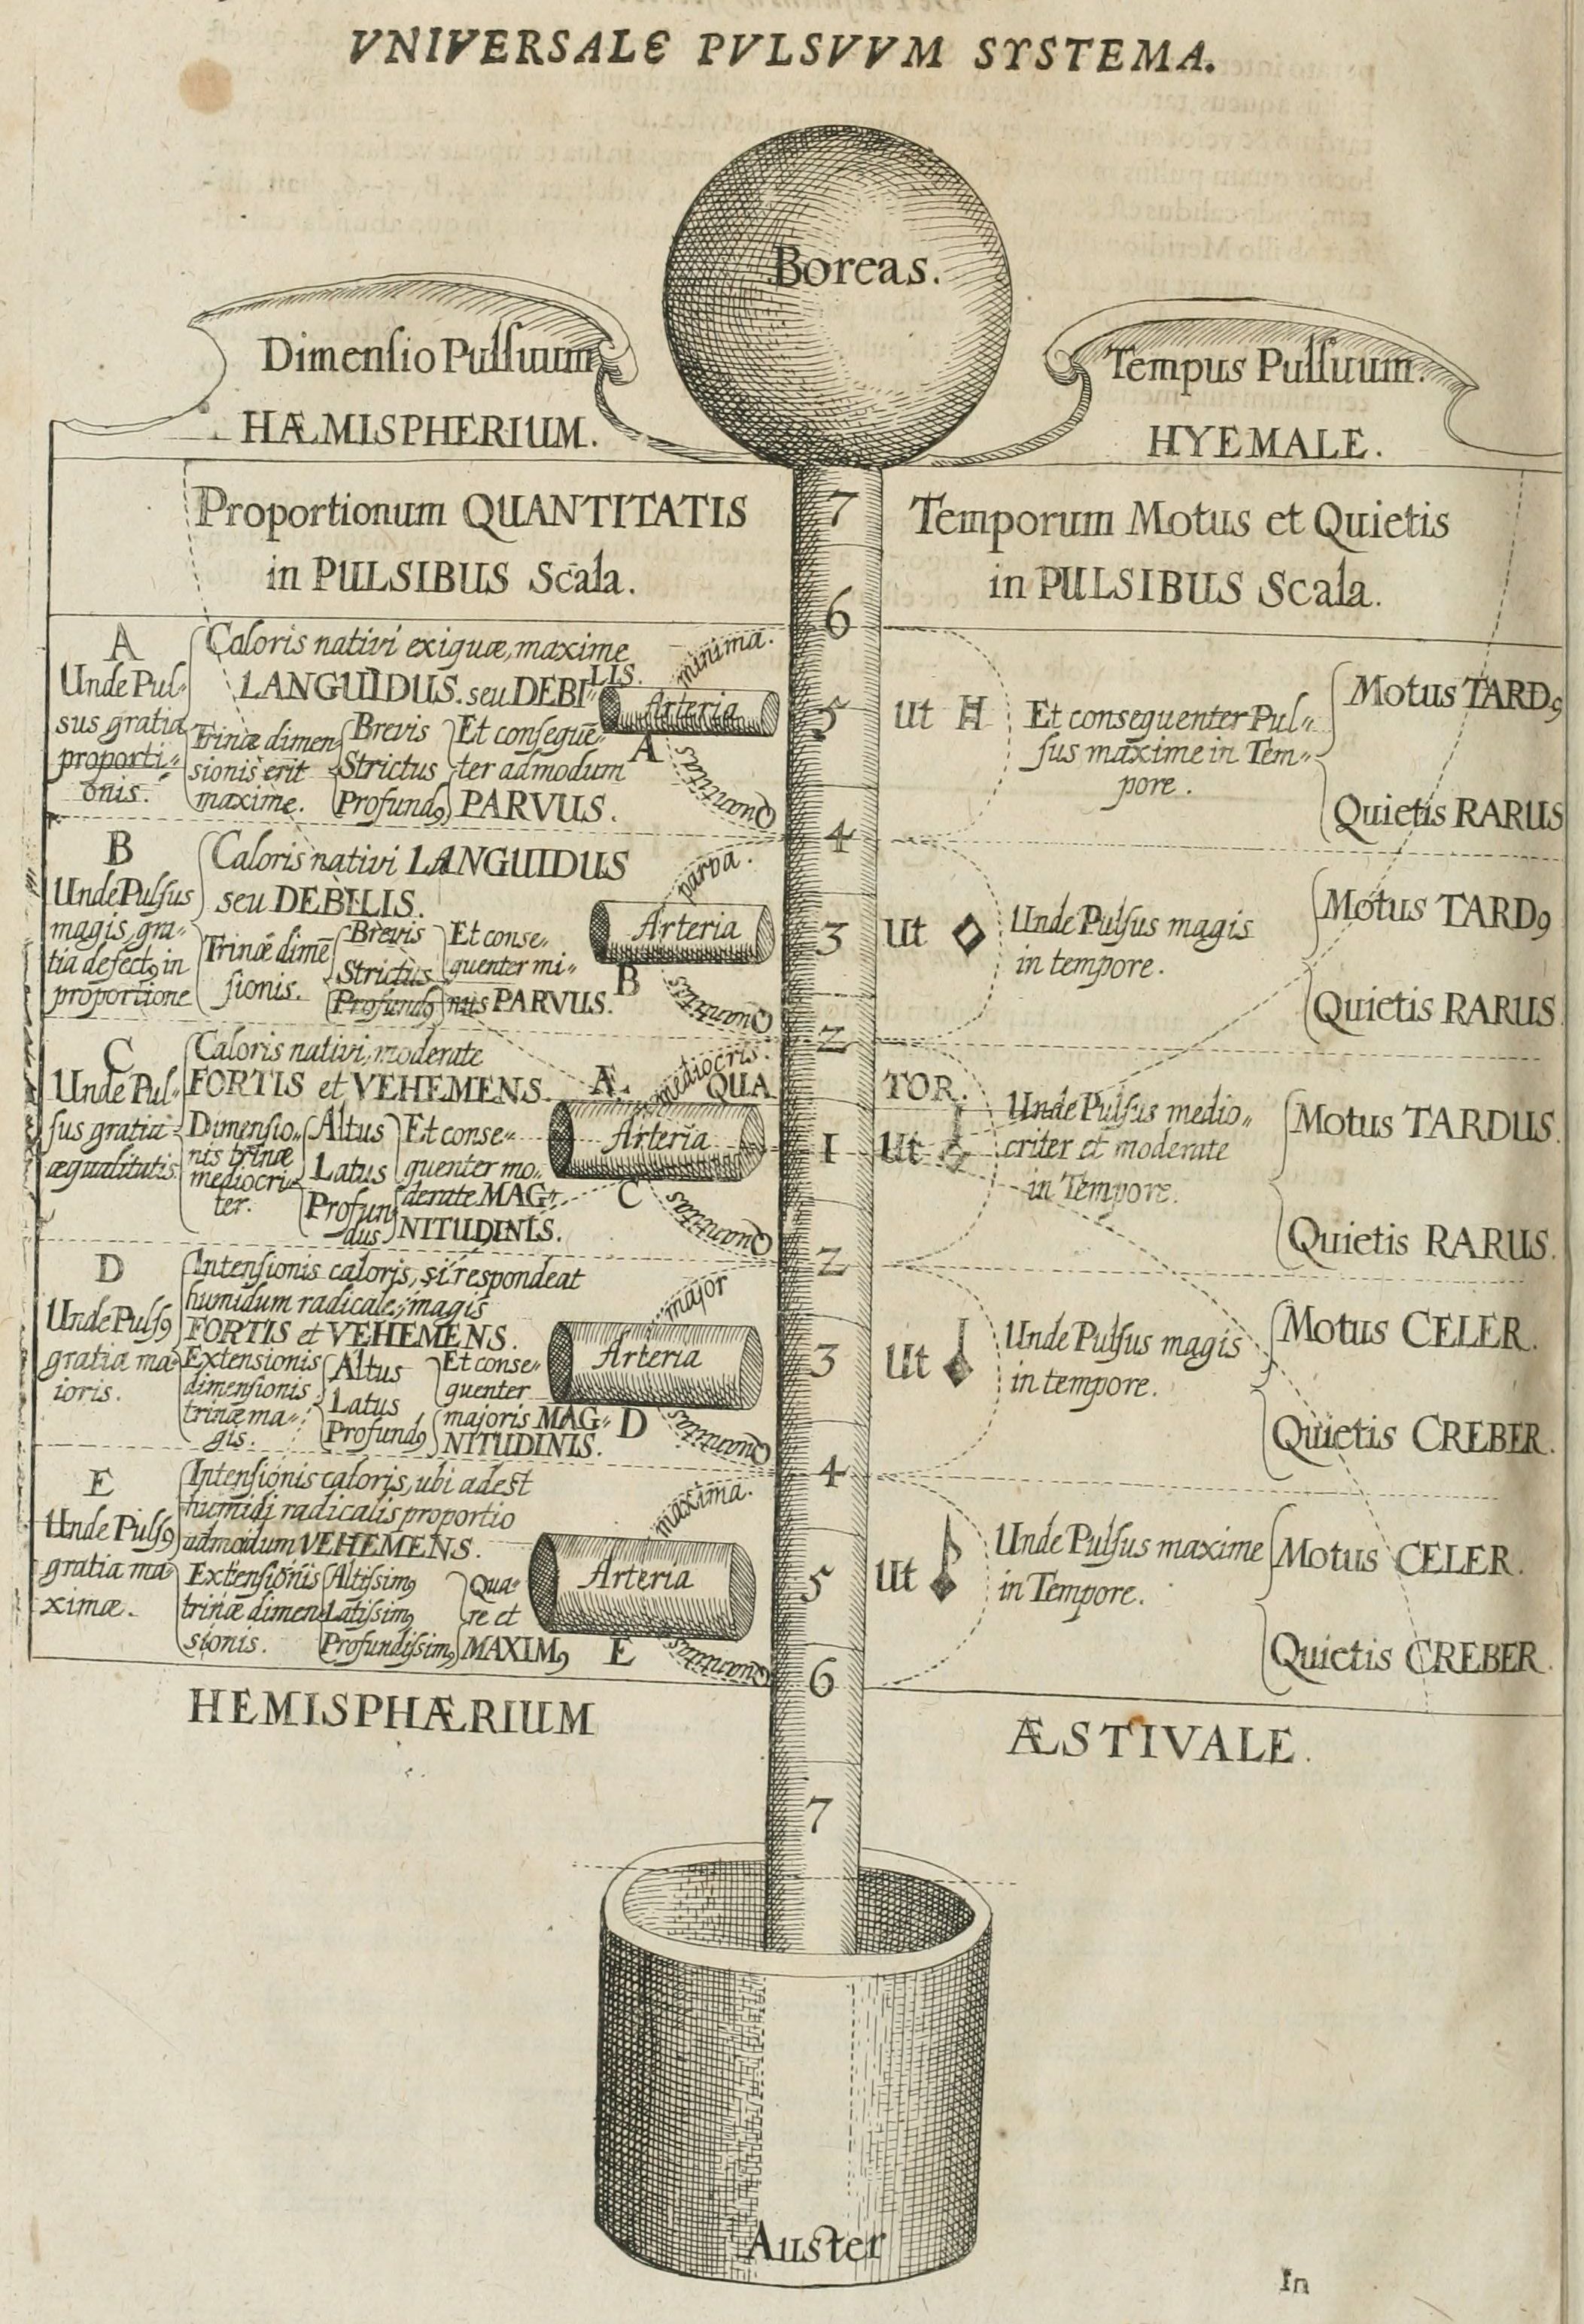 VNIVERSALE PVLSVVM SYSTEMA.
Boreas.
Dimensio Pulsuum
HÆMISPHERIUM.
Tempus Pulsuum.
HYEMALE.
Proportionum QUANTITATIS
in PULSIBUS Scala.
7
Temporum Motus et Quietis
in PULSIBUS Scala.
6
A
Unde Pul-
sus gratia
proporti-
onis.
Caloris nativi exiguæ, maxime
LANGUIDUS. seu DEBI-
LIS.
Trinæ dimen
sionis erit
maxime.
Brevis
Strictus
Profundꝯ
Et consequē-
ter admodum
PARVUS.
minima.
Arteria
A
Quantitas
5
Ut H
Et consequenter Pul-
sus maxime in Tem-
pore.
Motus TARDꝯ
Quietis RARUS
4
B
Unde Pulsus
magis gra-
tia defectꝯ in
proportione
Caloris nativi LANGUIDUS
seu DEBILIS.
Trinæ dimē
sionis.
Brevis
Strictus
Profundꝯ
Et conse-
quenter mi-
nus PARVUS.
parva.
Arteria
B
Quantitas
3
Ut
Unde Pulsus magis
in tempore.
Motus TARDꝯ
Quietis RARUS
2
C
Unde Pul-
sus gratia
æqualitatis
Caloris nativi, moderate
FORTIS et VEHEMENS.
Dimensio-
nis trinæ
mediocri-
ter.
Altus
Latus
Profun
dus
Et conse-
quenter mo-
derate MAG-
NITUDINIS.
Æ. QUA TOR.
mediocris.
Arteria
C
Quantitas
1
Ut
Unde Pulsus medio-
criter et moderate
in Tempore.
Motus TARDUS.
Quietis RARUS.
2
D
Unde Pulsꝯ
gratia ma-
ioris.
Intensionis caloris, si respondeat
humidum radicale, magis
FORTIS et VEHEMENS.
Extensionis
dimensionis
trinæ ma-
gis.
Altus
Latus
Profundꝯ
Et conse-
quenter
majoris MAG-
NITUDINIS.
major
Arteria
D
Quantitas
3
Ut
Unde Pulsus magis
in tempore.
Motus CELER.
Quietis CREBER.
4
E
Unde Pulsꝯ
gratia ma-
ximæ.
Intensionis caloris, ubi adest
humidi radicalis proportio
admodum VEHEMENS.
Extensionis
trinæ dimen
sionis.
Altissimꝯ
Latissimꝯ
Profundissimꝯ
Qua-
re et
MAXIMꝯ
maxima.
Arteria
E
Quantitas
5
Ut
Unde Pulsus maxime
in Tempore.
Motus CELER.
Quietis CREBER.
6
HEMISPHÆRIUM
ÆSTIVALE.
7
Auster
In